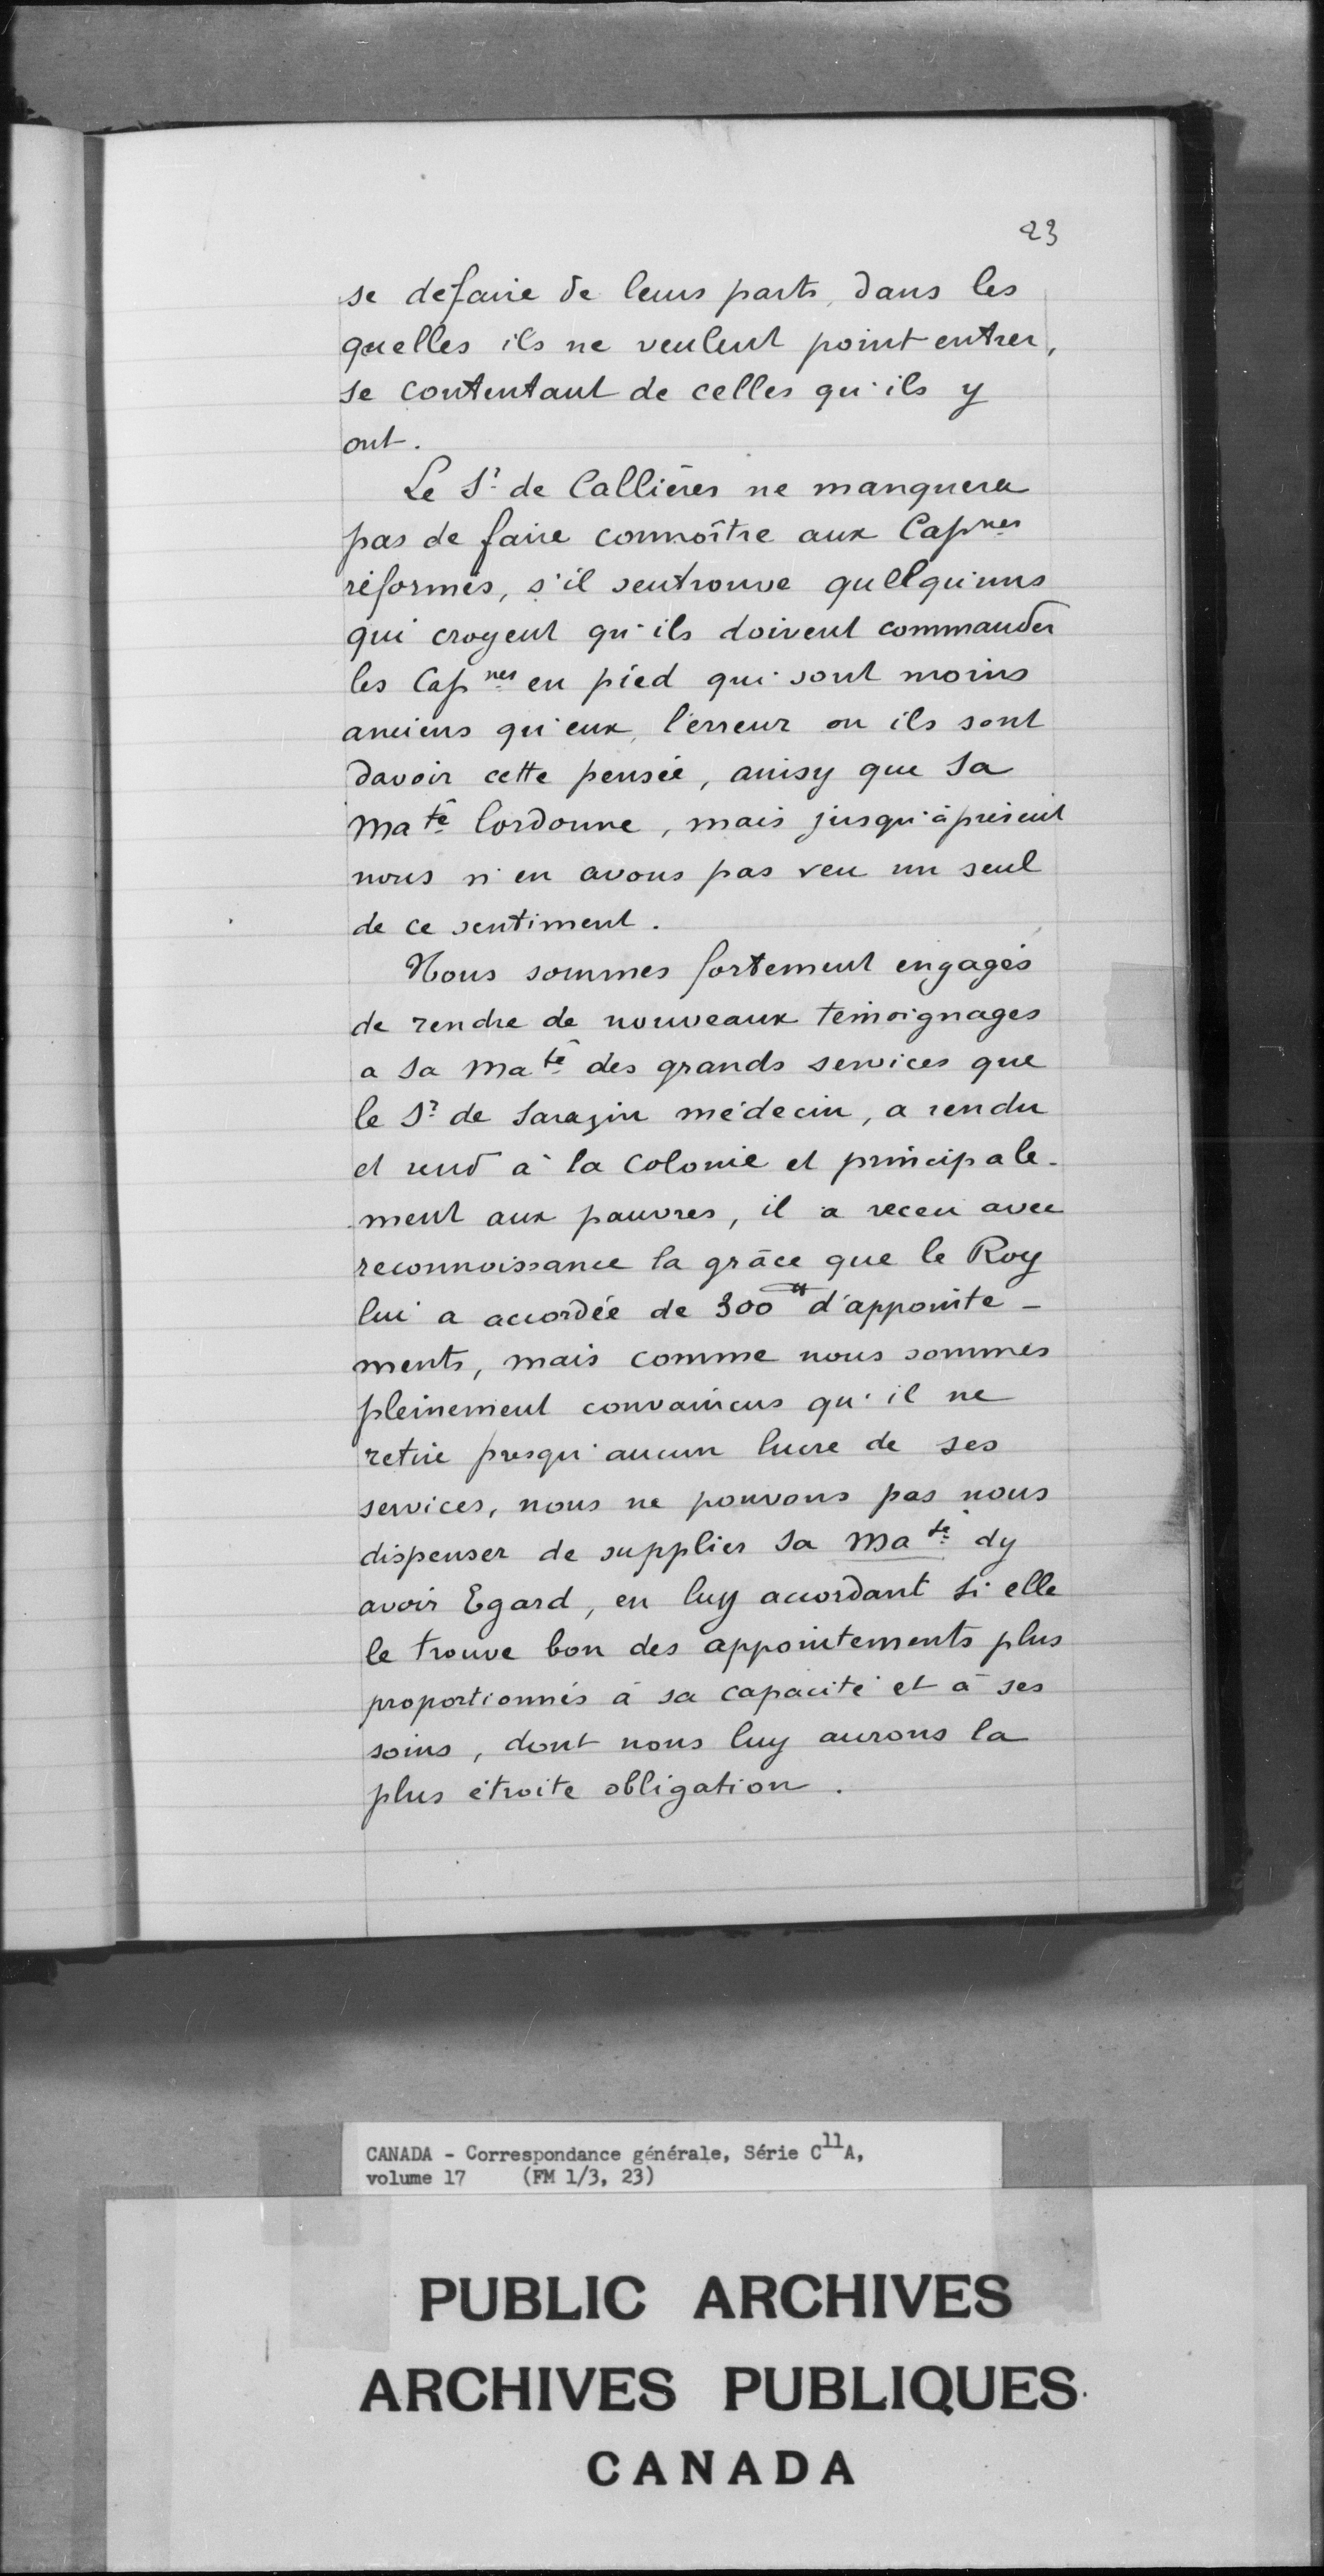 23
se defaire de leurs parts, dans les
quelles ils ne veulent point entrer,
se contentant de celles qu'ils y
ont.
Le Sr de Callières ne manquera
pas de faire connoître aux Capnes
réformés, s'il sentrouve quelqu'uns
qui croyent qu'ils doivent commander
les Capnes en pied qui sont moins
anciens qu'eux, l'erreur ou ils sont
davoir cette pensée, ainsy que Sa
Maté lordonne, mais jusqu'à présent
nous n'en avons pas veu un seul
de ce sentiment.
Nous sommes fortement engagés
de rendre de nouveaux témoignages
a Sa Maté des grands services que
le Sr de Sarazin médecin, a rendu
et rend à la Colonie et principale-
ment aux pauvres, il a receu avec
reconnoissance la grâce que le Roy
lui a accordée de 300 # d'appointe-
ments, mais comme nous sommes
pleinement convaincus qu'il ne
retire presqu'aucun lucre de ses
services, nous ne pouvons pas nous
dispenser de supplier Sa Maté dy
avoir Egard, en luy accordant Si elle
le trouve bon des appointements plus
proportionnés à sa capacité et à ses
soins, dont nous luy aurons la
plus étroite obligation.
CANADA - Correspondance générale, Série C11A,
volume 17 (FM 1/3, 23)
PUBLIC ARCHIVES
ARCHIVES PUBLIQUES
CANADA